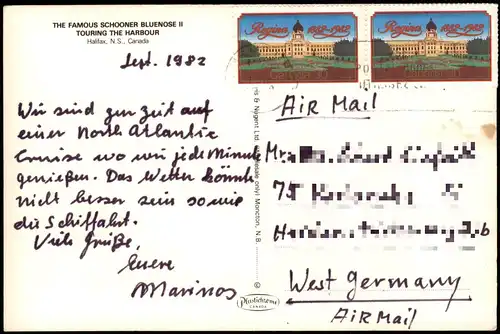 THE FAMOUS SCHOONER BLUENOSE II
TOURING THE HARBOUR
Halifax, N.S., Canada
Sept. 1982
Wir sind zur Zeit auf
einer North Atlantic
Cruise wo wir jede Minute
genießen. Das Wetter könnte
nicht besser sein sowie
die Schiffahrt.
Viele Grüße,
Euere
Marinos
Plastichrome
CANADA
Regina 1882-1982
Regina 1882-1982
AIR MAIL
Mr.
75
West Germany
AIR MAIL